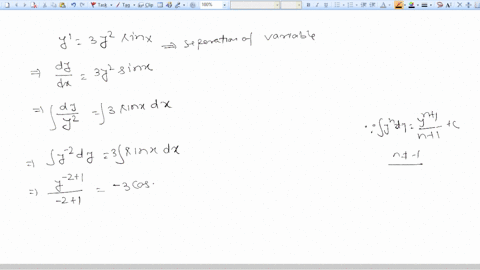 y' = 3y² sinx ⇒ separation of variable
⇒ dy/dx = 3y² sinx
⇒ ∫ dy/y² = ∫ 3 sinx dx
⇒ ∫ y⁻² dy = 3∫ sinx dx
⇒ y⁻²⁺¹/-2+1 = -3 cos
∵ ∫yⁿdy = yⁿ⁺¹/n+1 + c
n ≠ -1